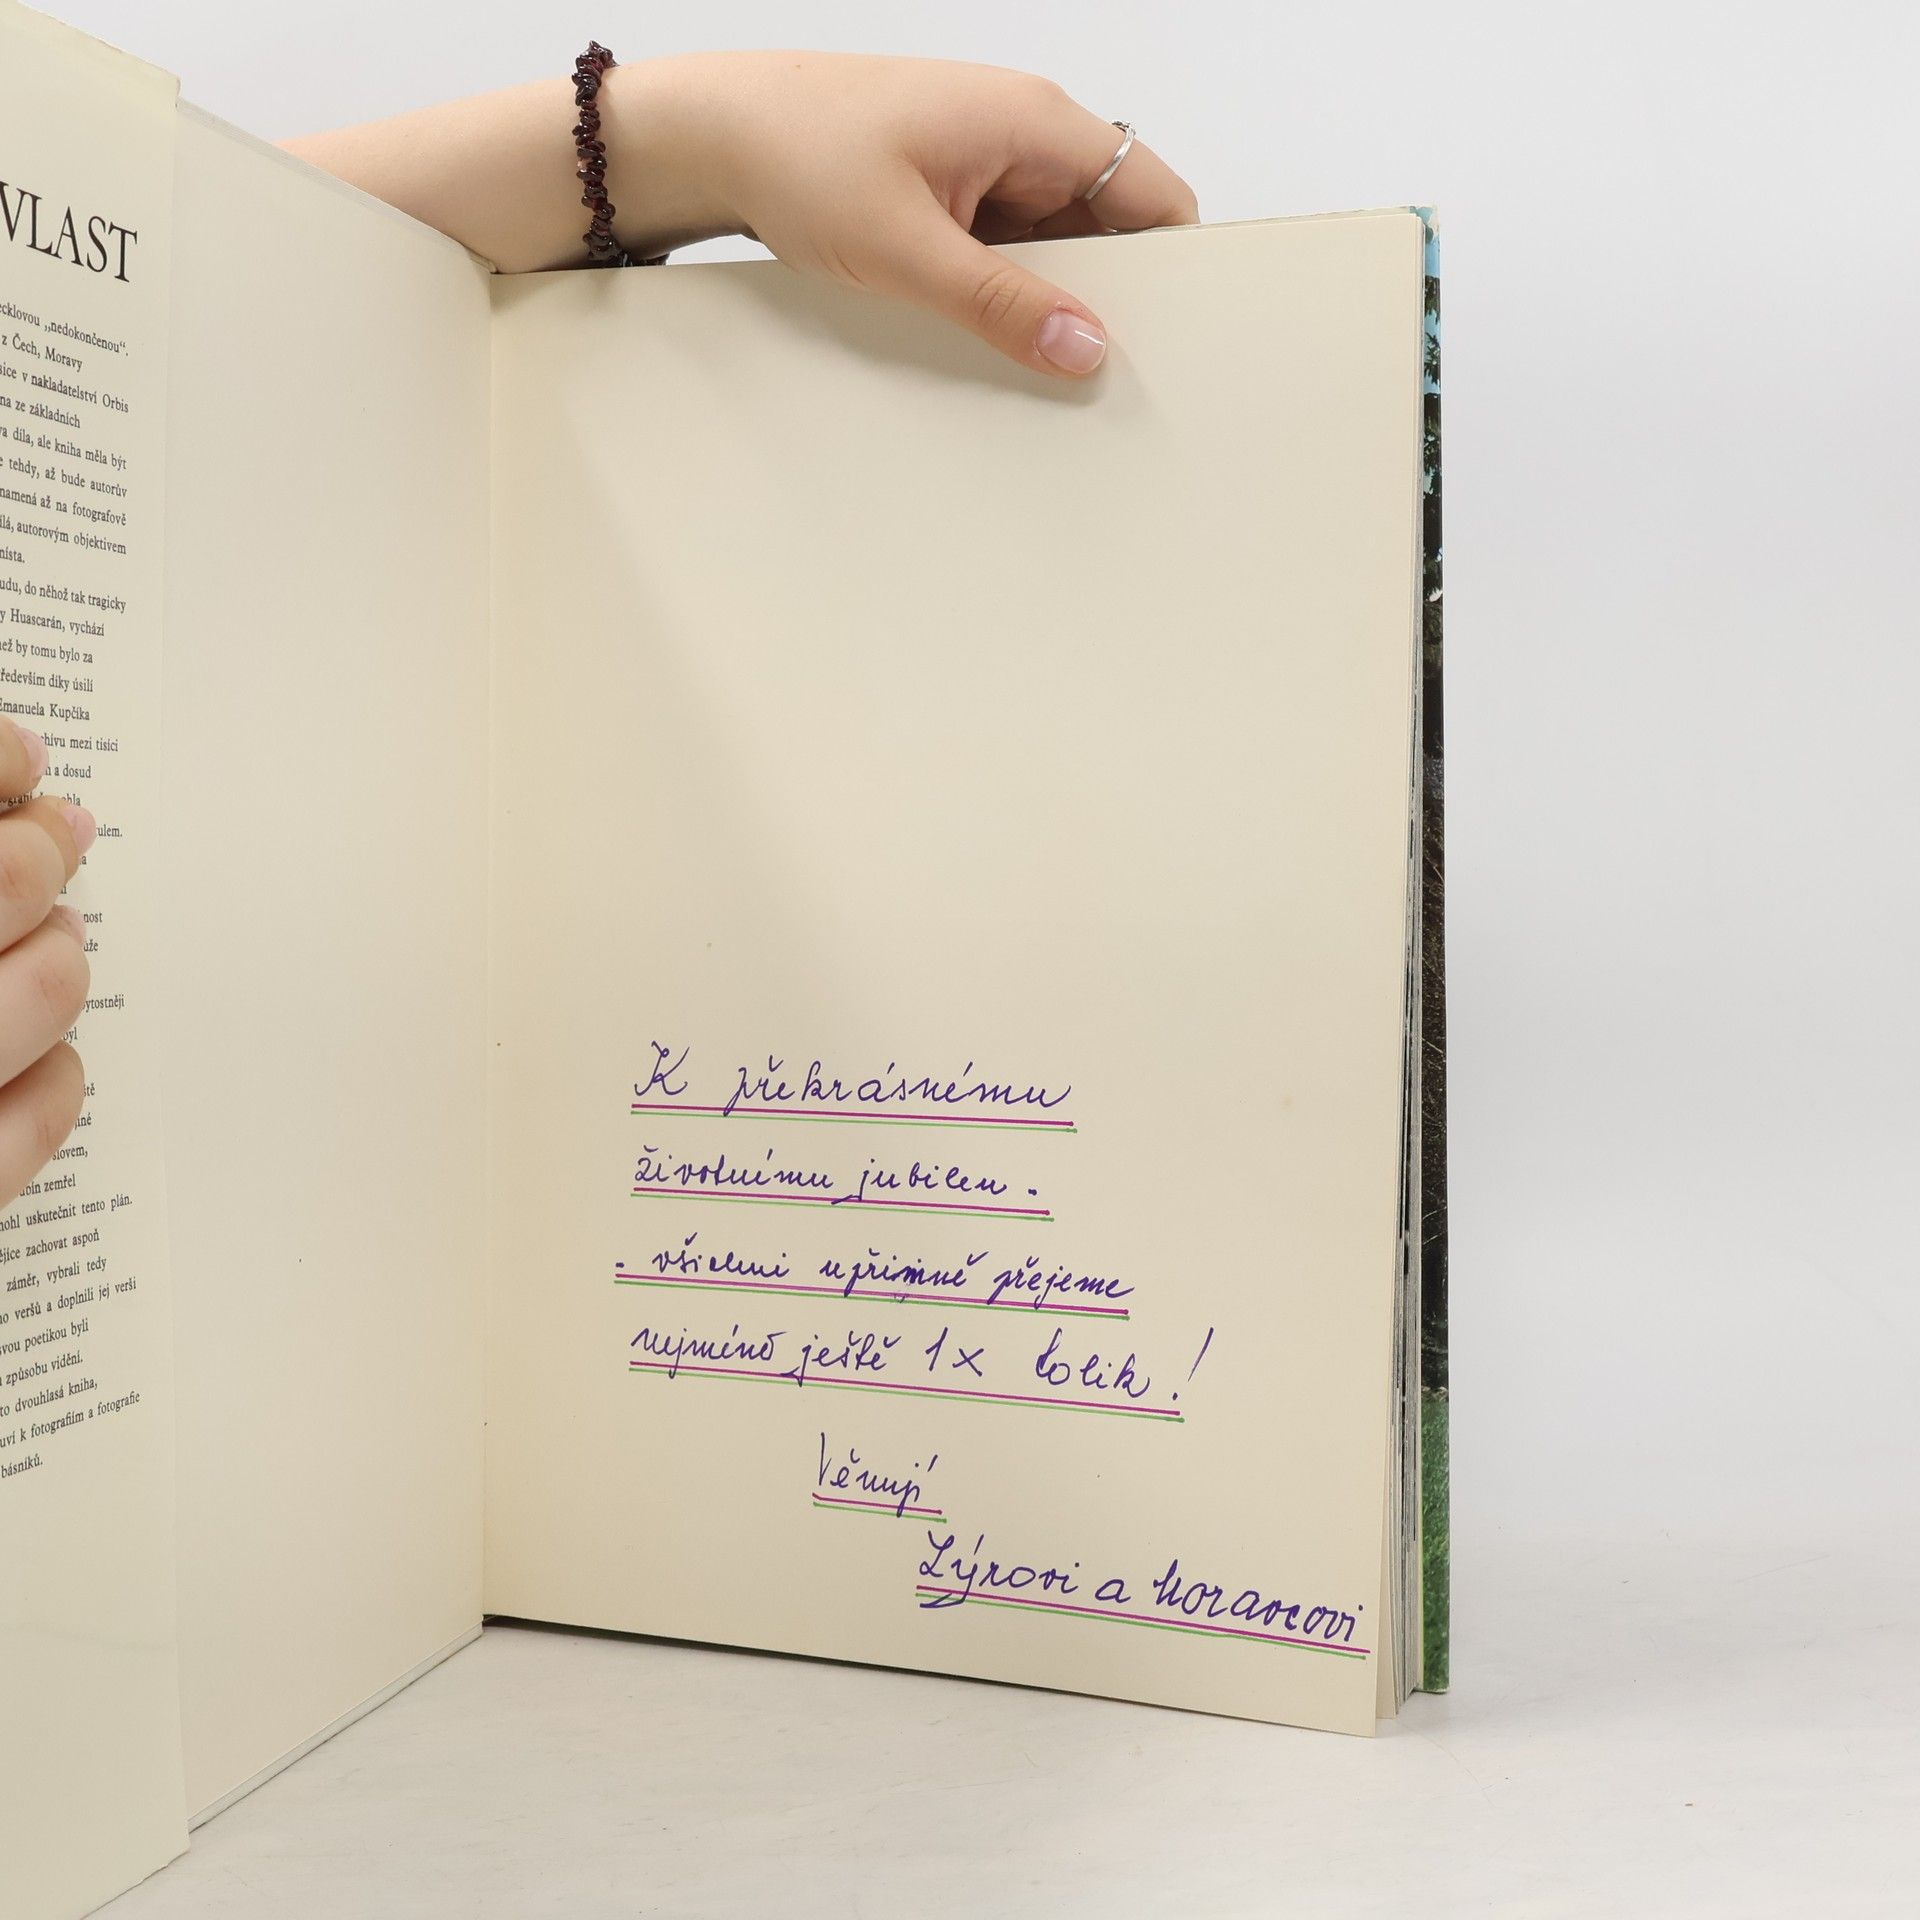 VLAST
„nedokončenou“.
z Čech, Moravy
v nakladatelství Orbis
ze základních
díla, ale kniha měla být
tehdy, až bude autorův
až na fotografově
autorovým objektivem
místa.
do něhož tak tragicky
Huascarán, vychází
než by tomu bylo za
především díky úsilí
Emanuela Kupčíka
mezi tisíci
a dosud
zemřel
mohl uskutečnit tento plán.
zachovat aspoň
záměr, vybrali tedy
veršů a doplnili jej verši
svou poetikou byli
způsobu vidění.
to dvouhlasá kniha,
k fotografiím a fotografie
básníků.
K překrásnému
životnímu jubileu -
- všichni upřimně přejeme
nejméně ještě 1x tolik!
Věnují
Lýrovi a Moravcovi